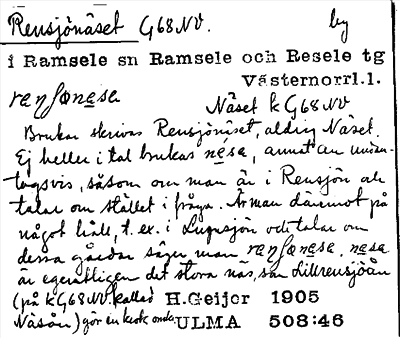 Rensjönäset G68NV. by
i Ramsele sn Ramsele och Resele tg
Västernorrl.l.
Näset k G68NV
Brukar skrivas Rensjönäset, aldrig Näset.
Ej heller i tal brukas nesa, annat än undan-
tagsvis, såsom om man är i Rensjön och
talar om stället i fråga. Är man däremot på
något håll, t. ex. i Lugnsjön och talar om
dessa gårdar säger man
är egentligen det stora näs, som Lillrensjöån
(på k G68NV. kallad H.Geijer 1905
Näsån) gör en krok ULMA 508:46